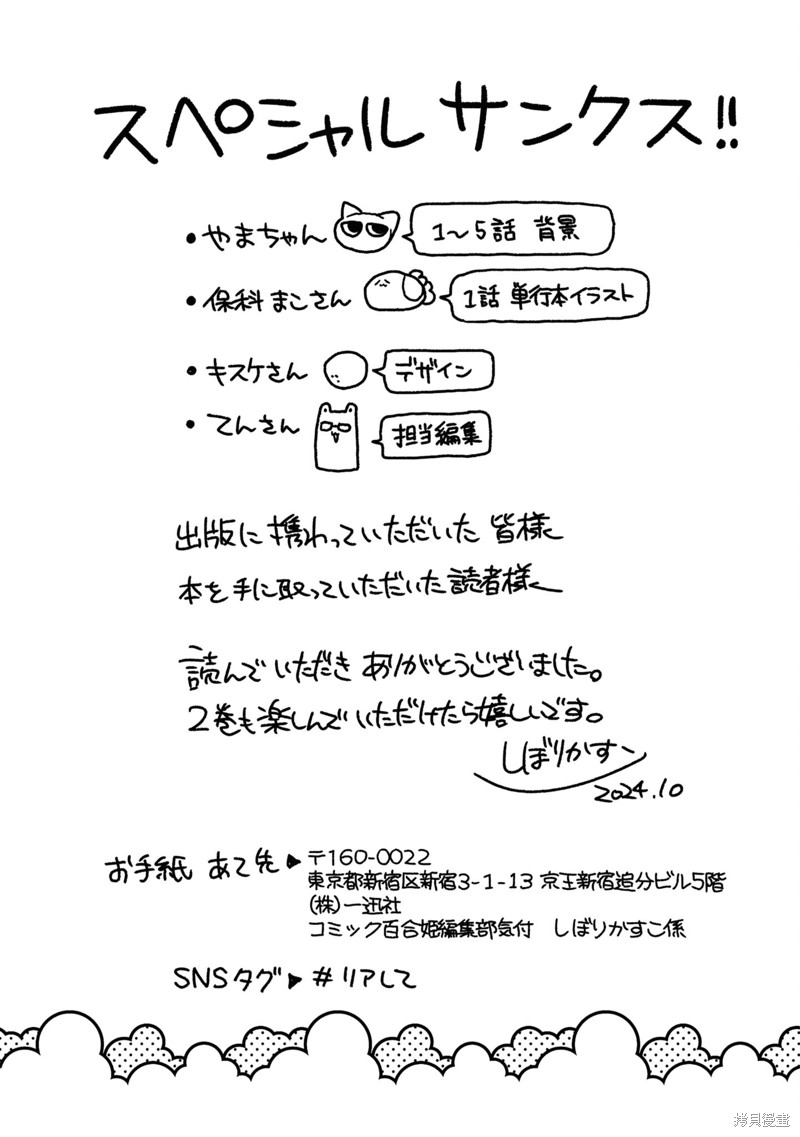 スペシャルサンクス!!
・やまちゃん 1〜5話 背景
・保科まこさん 1話 単行本イラスト
・キスケさん デザイン
・てんさん 担当編集
出版に携わっていただいた 皆様
本を手に取っていただいた読者様
読んでいただき ありがとうございました。
2巻も楽しんでいただけたら嬉しいです。
しぼりかすこ
2024.10
お手紙 あて先▶〒160-0022
東京都新宿区新宿3-1-13 京王新宿追分ビル5階
(株)一迅社
コミック百合姫編集部気付 しぼりかすこ係
SNSタグ▶#リアして
拷貝漫畫